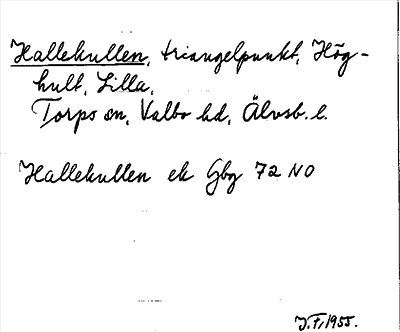 Hallekullen, triangelpunkt, Hög-
hult, Lilla,
Torps sn, Valbo hd, Älvsb. l.
Hallekullen ek Gbg 72 NO
J.F. 1955.